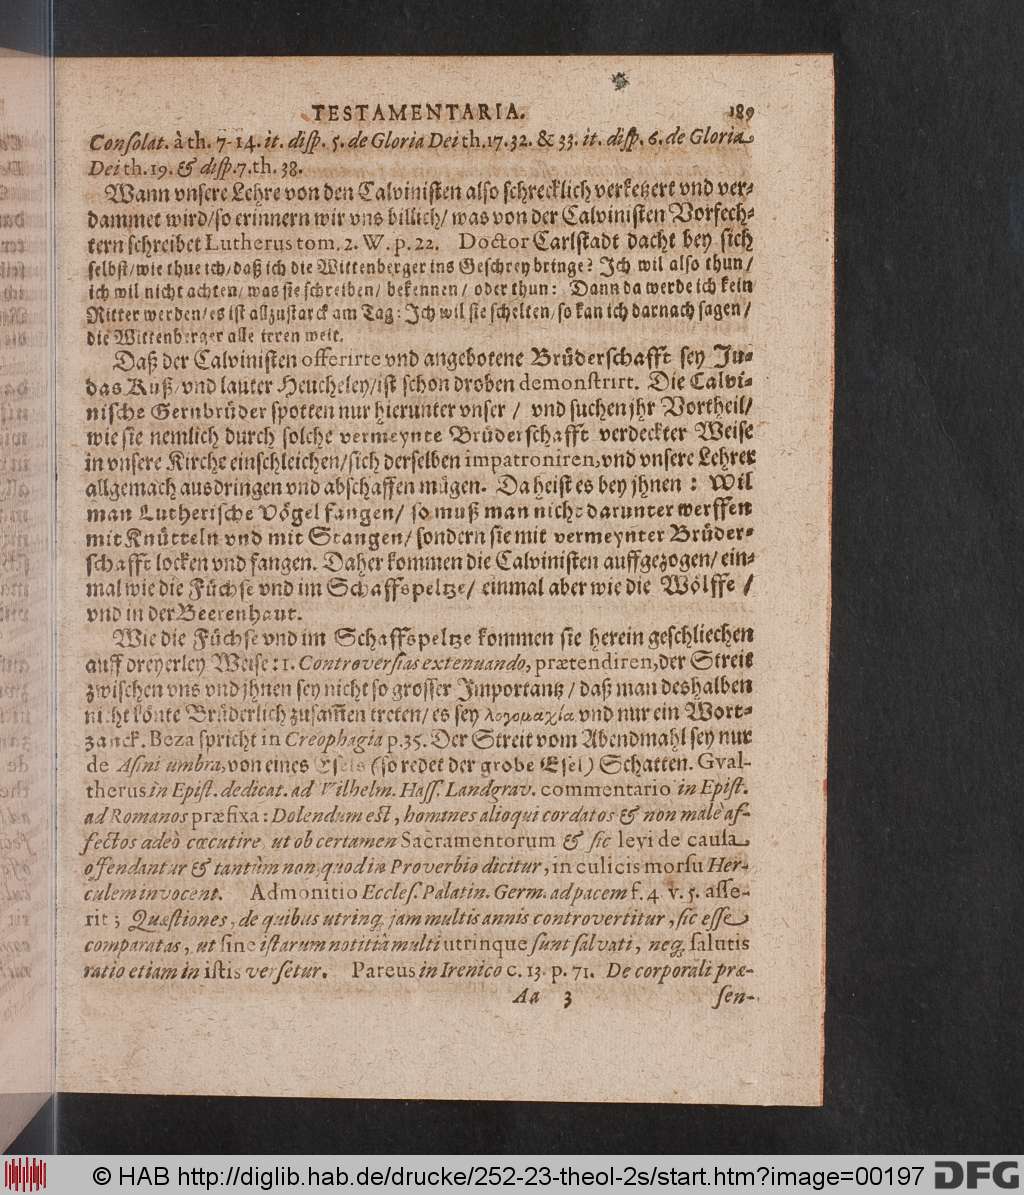 TESTAMENTARIA. 189
Consolat. à th. 7-14. it. disp. 5. de Gloria Dei th. 17. 32. & 33. it. disp. 6. de Gloria
Dei th. 19. & disp. 7. th. 38.
Wann vnsere Lehre von den Calvinisten also schrecklich verketzert vnd ver-
dammet wird/ so erinnern wir vns billich/ was von der Calvinisten Vorfech-
tern schreibet Lutherus tom. 2. W. p. 22. Doctor Carlstadt dacht bey sich
selbst/ wie thue ich/ daß ich die Wittenberger ins Geschrey bringe? Ich wil also thun/
ich wil nicht achten/ was sie schreiben/ bekennen/ oder thun: Dann da werde ich kein
Ritter werden/ es ist allzustarck am Tag: Ich wil sie schelten/ so kan ich darnach sagen/
die Wittenberger alle irren weit.
Daß der Calvinisten offerirte vnd angebotene Brüderschafft sey Ju-
das Kuß/ vnd lauter Heucheley/ ist schon droben demonstrirt. Die Calvi-
nische Gernbrüder spotten nur hierunter vnser / vnd suchen jhr Vortheil/
wie sie nemlich durch solche vermeynte Brüderschafft verdeckter Weise
in vnsere Kirche einschleichen/ sich derselben impatroniren, vnd vnsere Lehrer
allgemach ausdringen vnd abschaffen mügen. Da heist es bey jhnen: Wil
man Lutherische Vögel fangen/ so muß man nicht darunter werffen
mit Knütteln vnd mit Stangen/ sondern sie mit vermeynter Brüder-
schafft locken vnd fangen. Daher kommen die Calvinisten auffgezogen/ ein-
mal wie die Füchse vnd im Schaffspeltze/ einmal aber wie die Wölffe /
vnd in der Beerenhaut.
Wie die Füchse vnd im Schaffspeltze kommen sie herein geschliechen
auff dreyerley Weise: 1. Controversias extenuando, prætendiren, der Streit
zwischen vns vnd jhnen sey nicht so grosser Importantz/ daß man deshalben
nicht könte Brüderlich zusam̃en treten/ es sey λογομαχία vnd nur ein Wort-
zanck. Beza spricht in Creophagia p. 35. Der Streit vom Abendmahl sey nur
de Asini umbra, von eines Esels (so redet der grobe Esel) Schatten. Gval-
therus in Epist. dedicat. ad Wilhelm. Hass. Landgrav. commentario in Epist.
ad Romanos præfixa: Dolendum est, homines alioqui cordatos & non malè af-
fectos adeò cœcutire, ut ob certamen Sacramentorum & sic levi de causa
offendantur & tantùm non, quod in Proverbio dicitur, in culicis morsu Her-
culem invocent. Admonitio Eccles. Palatin. Germ. ad pacem f. 4. v. 5. asse-
rit; Quæstiones, de quibus utrinq; jam multis annis controvertitur, sic esse
comparatas, ut sine istarum notitiâ multi utrinque sunt salvati, neq; salutis
ratio etiam in istis versetur. Pareus in Irenico c. 13. p. 71. De corporali præ-
Aa 3 sen-
© HAB http://diglib.hab.de/drucke/252-23-theol-2s/start.htm?image=00197 DFG